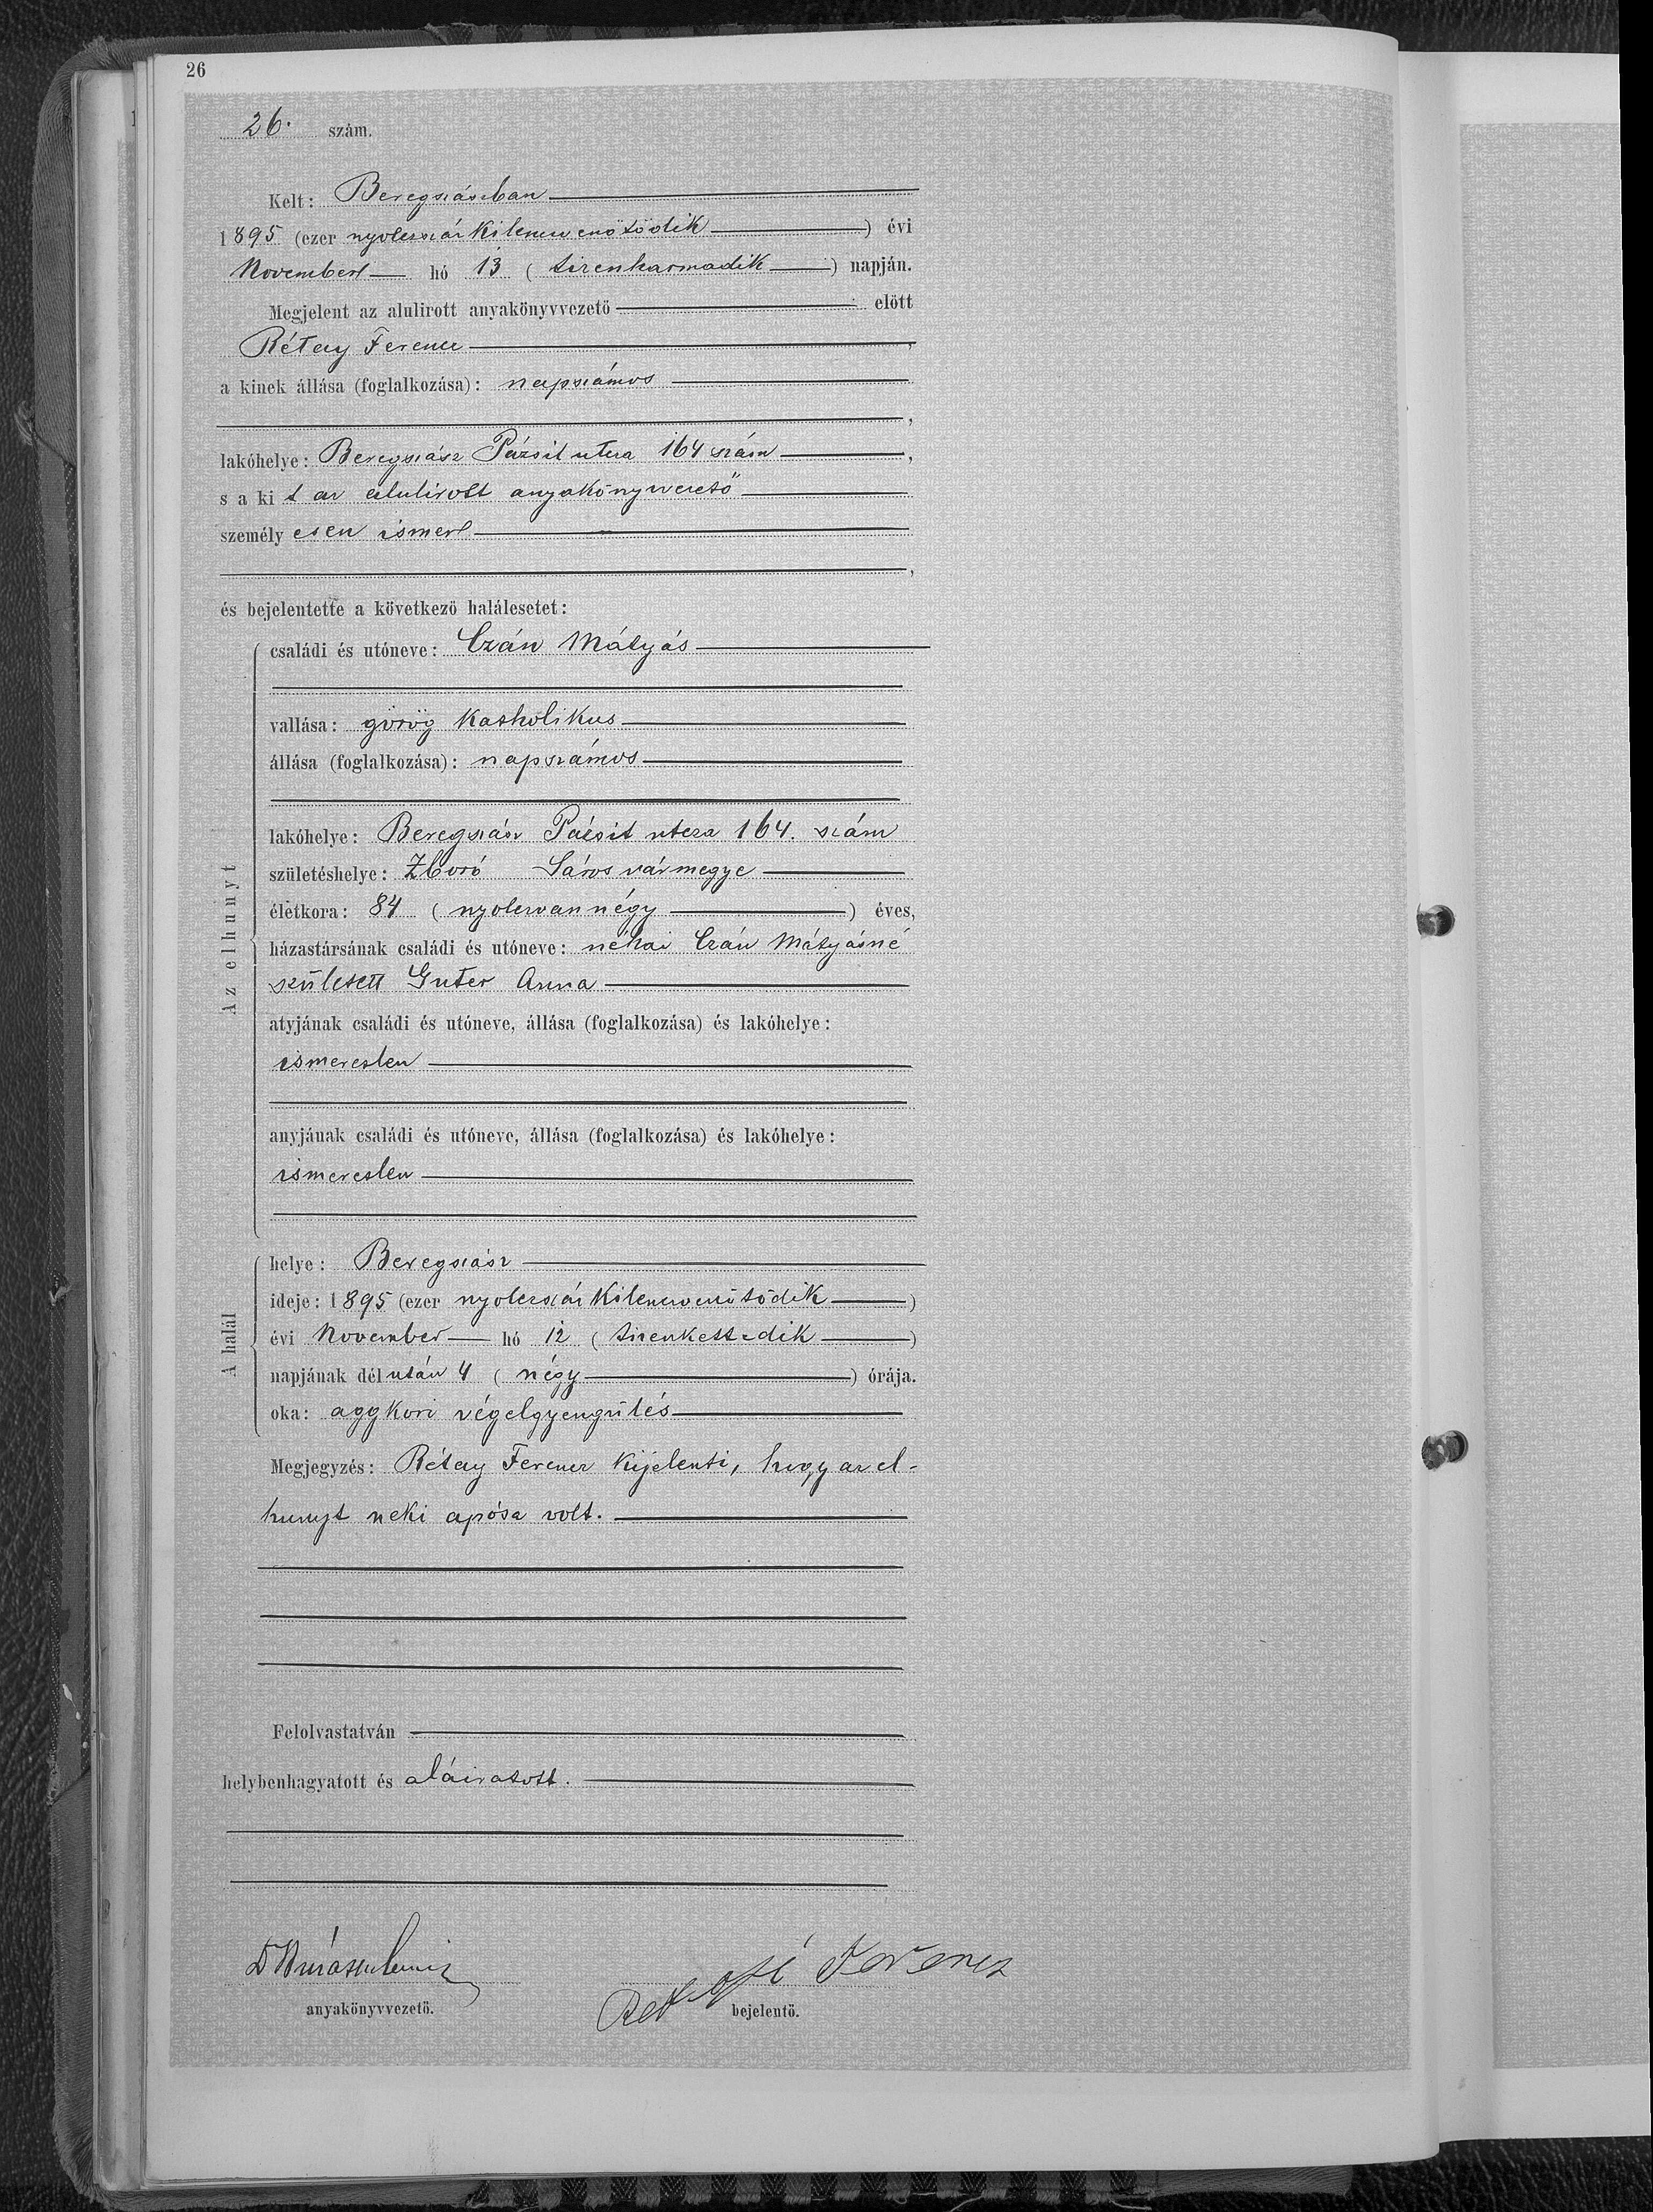 26
26. szám.
Kelt: Beregszászban
1895 (ezer nyolczszáz kilenczvenötödik) évi
November hó 13 (tizenharmadik) napján.
Megjelent az alulirott anyakönyvvezető előtt
Rétay Ferencz,
a kinek állása (foglalkozása): napszámos
,
lakóhelye: Beregszász Pázsit utcza 164 szám,
s a kit az alulirott anyakönyvvezető
személyesen ismer
,
és bejelentette a következő halálesetet:
Az elhunyt
családi és utóneve: Czán Mátyás
vallása: görög katholikus
állása (foglalkozása): napszámos
lakóhelye: Beregszász Pázsit utcza 164. szám
születéshelye: Zboró Sáros vármegye
életkora: 84 (nyolczvannégy) éves,
házastársának családi és utóneve: néhai Czán Mátyásné
született Guter Anna
atyjának családi és utóneve, állása (foglalkozása) és lakóhelye:
ismeretlen
anyjának családi és utóneve, állása (foglalkozása) és lakóhelye:
ismeretlen
A halál
helye: Beregszász
ideje: 1895 (ezer nyolczszáz kilenczvenötödik)
évi November hó 12 (tizenkettedik)
napjának délután 4 (négy) órája.
oka: aggkori végelgyengülés
Megjegyzés: Rétay Ferencz kijelenti, hogy az el-
hunyt neki apósa volt.
Felolvastatván
helybenhagyatott és aláiratott.
Ferencz
anyakönyvvezető. bejelentő.